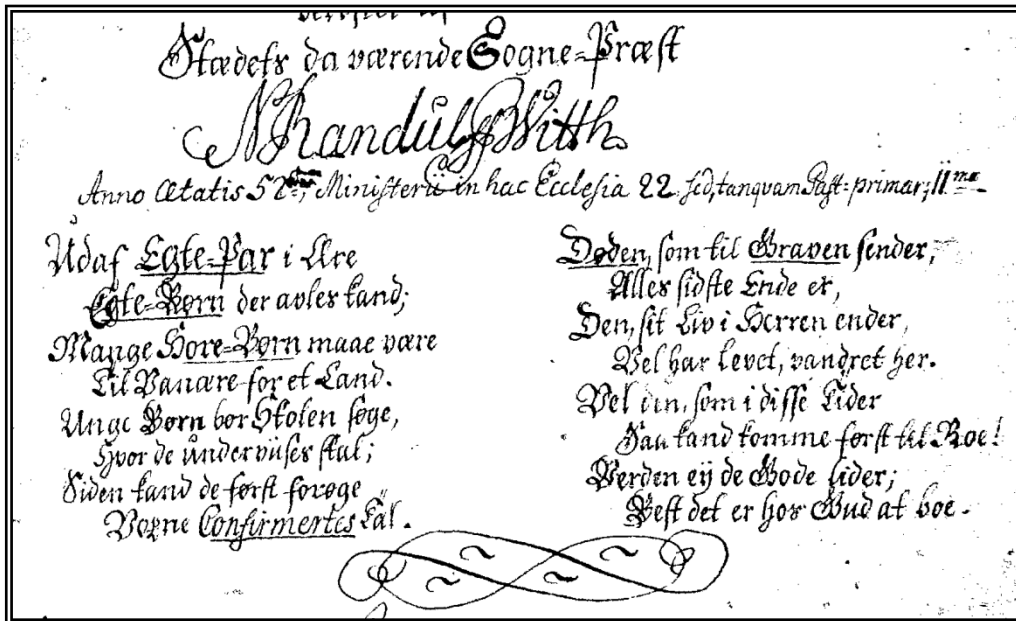 Stædets da værende Sogne-Præst
N Randulff Witth
Anno Ætatis 52 Ministerii in hac Ecclesia 22 sed, tanqvam Past: primar; 11me
Udaf Egte-Par i Ære
Egte-Børn der avles kand;
Mange Hore-Børn maae være
Til Vanære for et Land.
Unge Børn bør Skolen søge,
Hvor de underviises skal;
Siden kand de først forøge
Voxne Confirmertes Tal.
Døden, som til Graven sender,
Alles sidste Ende er,
Den, sit Liv i Herren ender,
Vel har levet, vandret her.
Vel den, som i disse Tider
Saa kand komme først til Roe!
Verden eij de Gode lider;
Best det er hos Gud at boe.